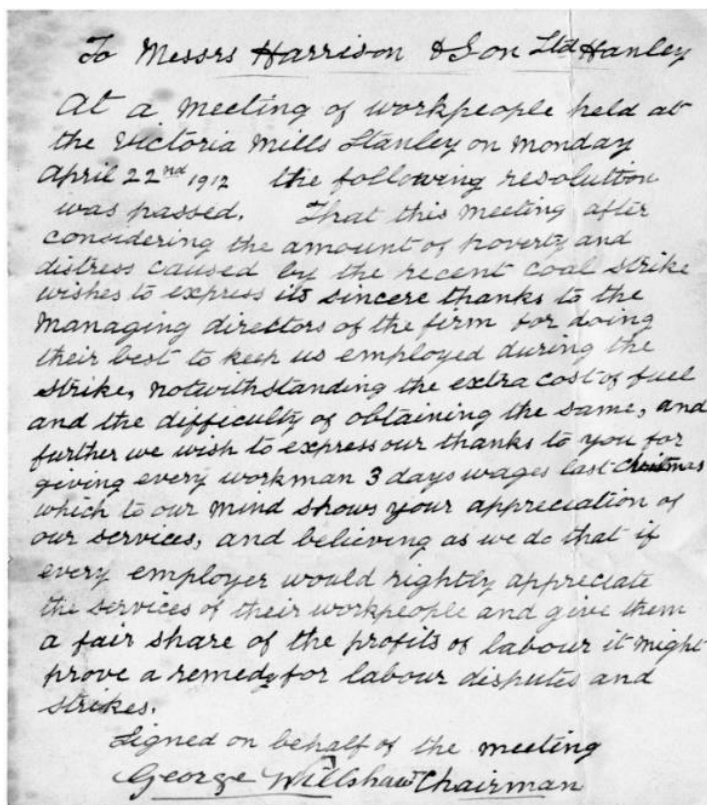 To Messrs Harrison & Son Ltd Hanley
At a meeting of workpeople held at
the Victoria Mills Stanley on Monday
April 22nd 1912 the following resolution
was passed. That this meeting after
considering the amount of poverty and
distress caused by the recent coal strike
wishes to express its sincere thanks to the
Managing directors of the firm for doing
their best to keep us employed during the
strike, notwithstanding the extra cost of fuel
and the difficulty of obtaining the same, and
further we wish to express our thanks to you for
giving every workman 3 days wages last Christmas
which to our mind shows your appreciation of
our services, and believing as we do that if
every employer would rightly appreciate
the services of their workpeople and give them
a fair share of the profits of labour it might
prove a remedy for labour disputes and
strikes.
Signed on behalf of the meeting
George Willshaw Chairman